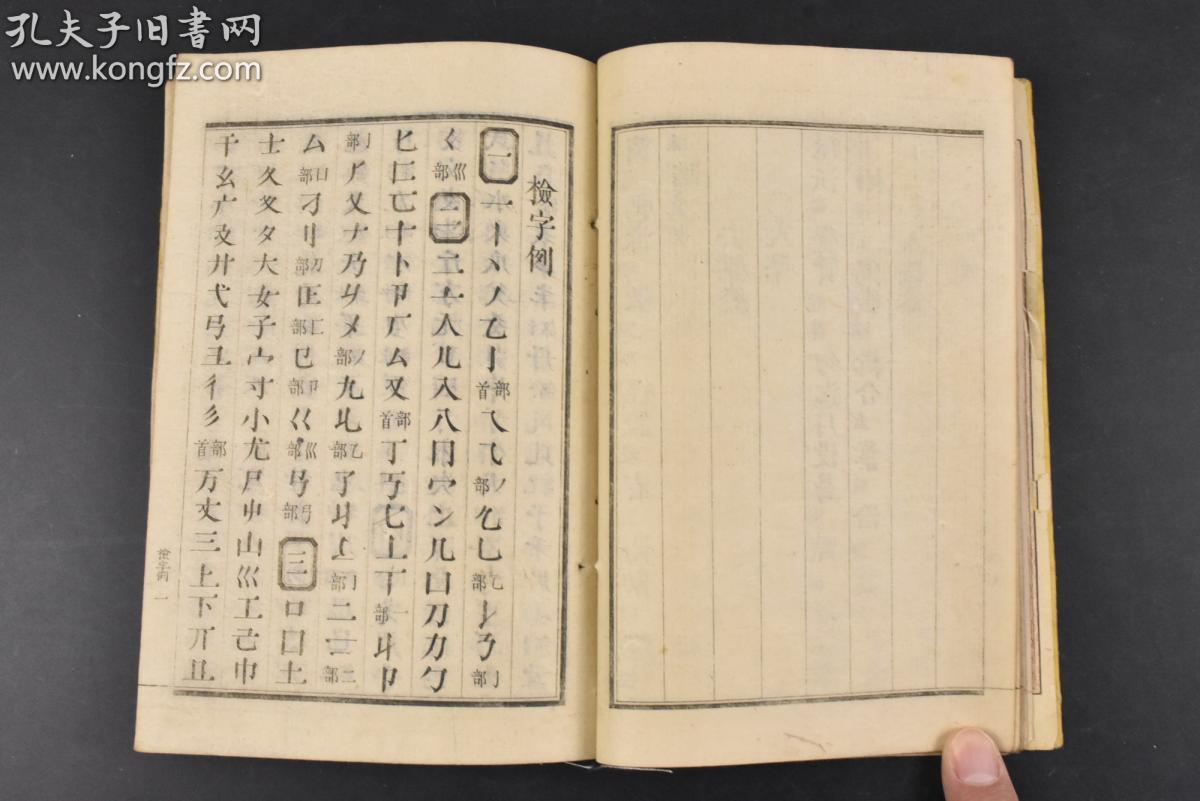 孔夫子旧书网
www.kongfz.com
檢字例
一 一丨丶丿乙亅部首乀乁丿部乞乚乙部
巜巛部 二 二亠人儿入八冂冖冫几凵刀力勹
匕匚匸十卜卩厂厶又部首丁丂七丄丅一部
亅部𠂆乂𠂇乃丿部九乙部了亅部二二部
厶口部刁刂刀部匚部巳卩部巜巛部弓部 三 口囗土
士夂夊夕大女子宀寸小尤尸屮山巛工己巾
干幺广廴廾弋弓彐彳彡部首万丈三上下丌丑
檢字例 一